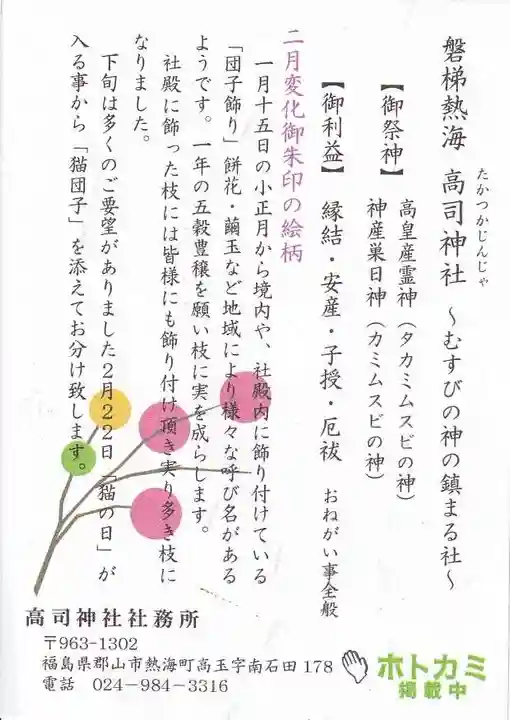 磐梯熱海 高司神社 ~むすびの神の鎮まる社~
たかつかじんじゃ
【御祭神】 高皇産霊神(タカミムスビの神)
神産巣日神(カミムスビの神)
【御利益】 縁結・安産・子授・厄祓 おねがい事全般
二月変化御朱印の絵柄
一月十五日の小正月から境内や、社殿内に飾り付けている
「団子飾り」餅花・繭玉など地域により様々な呼び名がある
ようです。一年の五穀豊穣を願い枝に実を成らします。
社殿に飾った枝には皆様にも飾り付け頂き実り多き枝に
なりました。
下旬は多くのご要望がありました2月22日「猫の日」が
入る事から「猫団子」を添えてお分け致します。
高司神社社務所
〒963-1302
福島県郡山市熱海町高玉字南石田 178
電話 024-984-3316
ホトカミ
掲載中